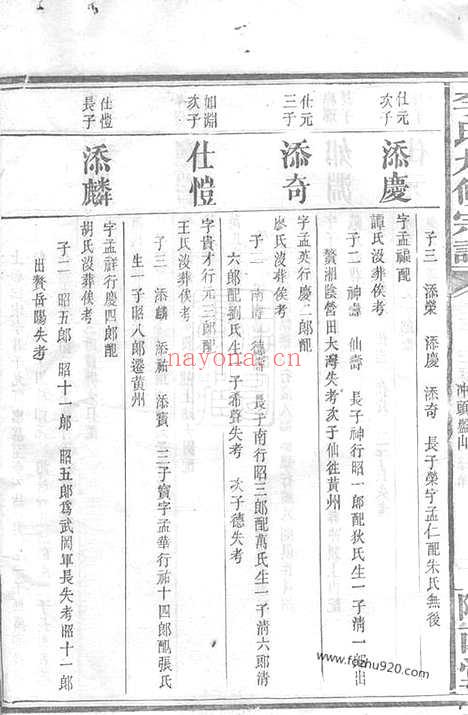 李氏九修宗譜
冲頭盤山
隴西堂
子三 添榮 添慶 添奇 長子榮字孟仁配朱氏無後
仕元次子
添慶
字孟福配
譚氏沒葬俟考
子二 神壽 仙壽 長子神行昭一郎配狄氏生一子清一郎出
贅湘陰營田大灣失考次子仙徙黃州
仕元三子
添奇
字孟英行慶二郎配
廖氏沒葬俟考
子二 南壽 德壽 長子南行昭三郎配萬氏生一子清六郎清
六郎配劉氏生一子希聲失考 次子德失考
如淵次子
仕愷
字貴才行元三郎配
王氏沒葬俟考
子三 添麟 添福 添賓 三子賓字孟華行祐十四郎配張氏
生一子昭八郎遷黃州
仕愷長子
添麟
字孟祥行慶四郎配
胡氏沒葬俟考
子二 昭五郎 昭十一郎 昭五郎為武岡軍長失考昭十一郎
出贅岳陽失考
nayona.cn
www.fozhu920.com